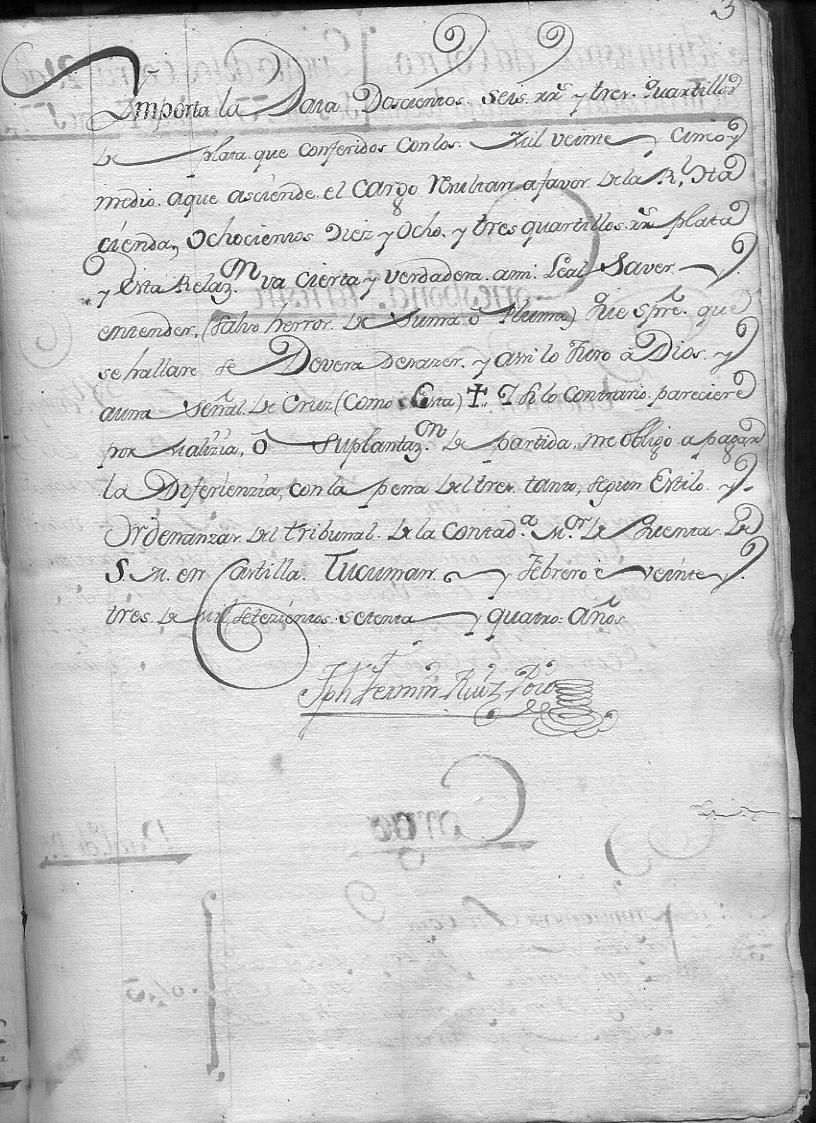 3
Ymporta la Data Doscientos. seis. rrs y tres. quartillos
de plata. que conferidos con los. Mil veinte y cinco y
medio. aque asciende. el cargo Resultan a favor de la Rl. Ha
cienda, Ochocientos Diez y Ocho. y tres quartillos. rrs plata
y Esta Relazn. va cierta y verdadera. ami. Leal Saver. y
entender, (salvo herror. de suma ô Pluma) que spre. que
se hallare se Devera Dexazer. y assi lo Juro â Dios. y
auna señal. de Cruz (Como Esta) ✝ .. Y si lo contrario. pareciere
por malizia, ô suplantazon. de partida, me obligo a pagar
la Diferienzia, con la pena del tres. tanto, segun Estilo. y
Ordenanzas del tribunal. de la Contada. Mor. de Quentas de
S. M. en Castilla. Tucuman. y Febrero è veinte y
tres. de Mil, setezientos. setenta y quatro: años
Jph Fermin Ruiz Poio